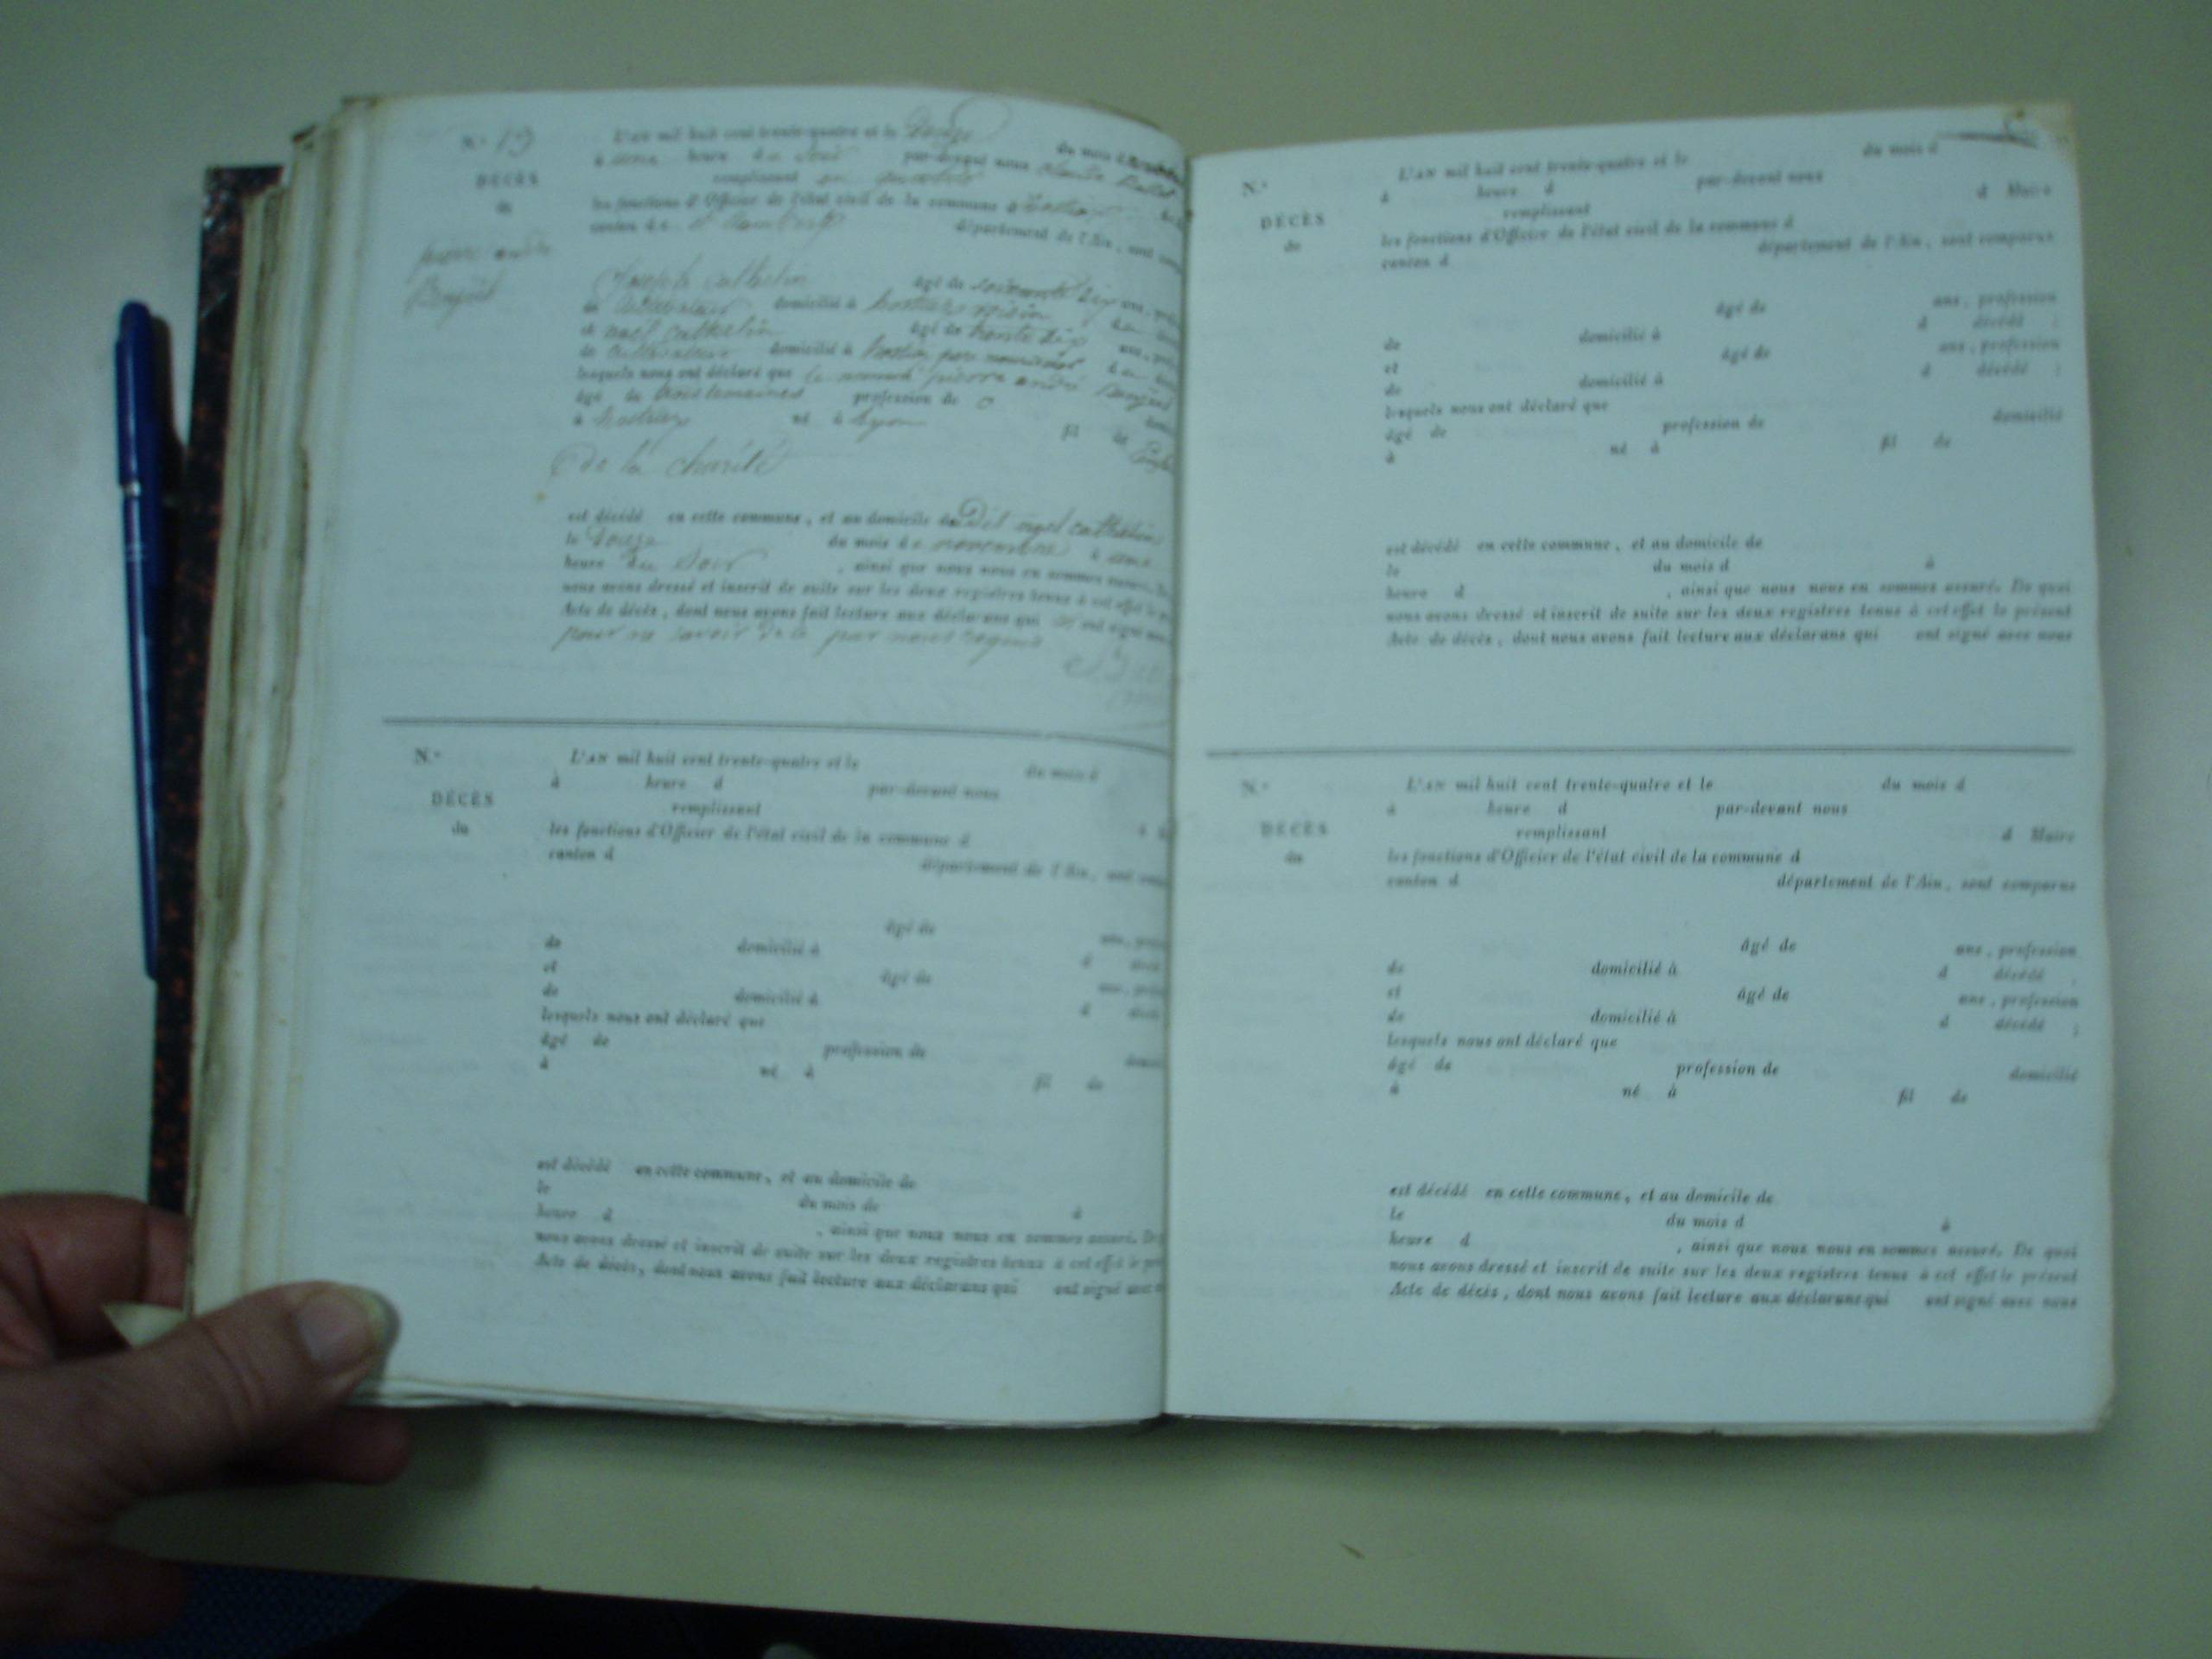 N.° 19
DÉCÈS
de
pierre andré
L'AN mil huit cent trente-quatre et le Douze du mois de
à heure du Soir par-devant nous Claude
remplissant en
les fonctions d'Officier de l'état civil de la commune d
canton de St département de l'Ain, sont
Joseph cathelin âgé de soixante Dix ans,
de cultivateur domicilié à voisin
et cathelin âgé de trente Dix ans,
de cultivateur domicilié à père nourricier
lesquels nous ont déclaré que le nommé pierre andré
âgé de trois semaines profession de
à né à Lyon fil de
De la charité
est décédé en cette commune, et au domicile du Dit cathelin
le Douze du mois de novembre à
heure du Soir, ainsi que nous nous en sommes
nous avons dressé et inscrit de suite sur les deux registres tenus à cet effet le
Acte de décès, dont nous avons fait lecture aux déclarans qui ont signé
pour ne savoir de ce par nous requis
N.°
DÉCÈS
de
L'AN mil huit cent trente-quatre et le du mois d
à heure d par-devant nous
remplissant
les fonctions d'Officier de l'état civil de la commune d
canton d département de l'Ain,
âgé de
de domicilié à
et âgé de
de domicilié à
lesquels nous ont déclaré que
âgé de profession de
à né à fil de
est décédé en cette commune, et au domicile de
le du mois de à
heure d , ainsi que nous nous en sommes assuré.
nous avons dressé et inscrit de suite sur les deux registres tenus à cet effet le
Acte de décès, dont nous avons fait lecture aux déclarans qui ont signé
N.°
DÉCÈS
de
L'AN mil huit cent trente-quatre et le du mois d
à heure d par-devant nous
remplissant d Maire
les fonctions d'Officier de l'état civil de la commune d
canton d département de l'Ain, sont comparus
âgé de ans, profession
de domicilié à d décédé ;
et âgé de ans, profession
de domicilié à d décédé ;
lesquels nous ont déclaré que
âgé de profession de domicilié
à né à fil de
est décédé en cette commune, et au domicile de
le du mois d à
heure d , ainsi que nous nous en sommes assuré. De quoi
nous avons dressé et inscrit de suite sur les deux registres tenus à cet effet le présent
Acte de décès, dont nous avons fait lecture aux déclarans qui ont signé avec nous
N.°
DÉCÈS
de
L'AN mil huit cent trente-quatre et le du mois d
à heure d par-devant nous
remplissant d Maire
les fonctions d'Officier de l'état civil de la commune d
canton d département de l'Ain, sont comparus
âgé de ans, profession
de domicilié à d décédé ;
et âgé de ans, profession
de domicilié à d décédé ;
lesquels nous ont déclaré que
âgé de profession de domicilié
à né à fil de
est décédé en cette commune, et au domicile de
le du mois d à
heure d , ainsi que nous nous en sommes assuré. De quoi
nous avons dressé et inscrit de suite sur les deux registres tenus à cet effet le présent
Acte de décès, dont nous avons fait lecture aux déclarans qui ont signé avec nous